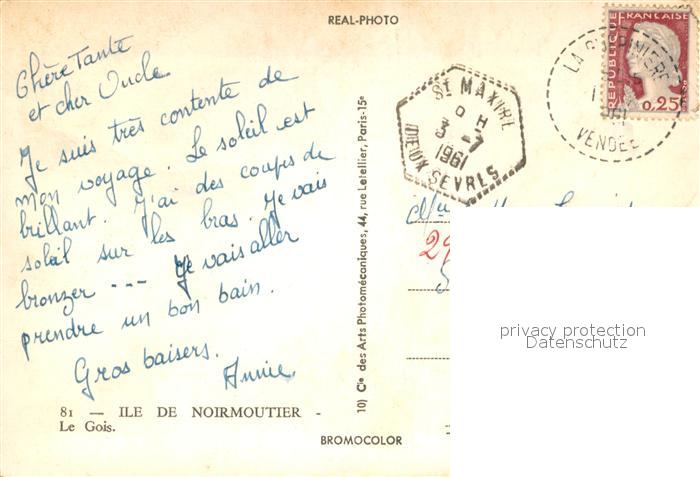 REAL-PHOTO
Chère Tante
et cher Oncle
Je suis très contente de
mon voyage. Le soleil est
brillant. J'ai des coups de
soleil sur les bras. Je vais
bronzer --- Je vais aller
prendre un bon bain.
Gros baisers.
Annie
81 — ILE DE NOIRMOUTIER -
Le Gois.
BROMOCOLOR
10) Cie des Arts Photomécaniques, 44, rue Letellier, Paris-15e
ST MAXIRE
3 - 7
1961
DEUX SEVRES
VENDEE
REPUBLIQUE FRANÇAISE
0,25F
privacy protection
Datenschutz